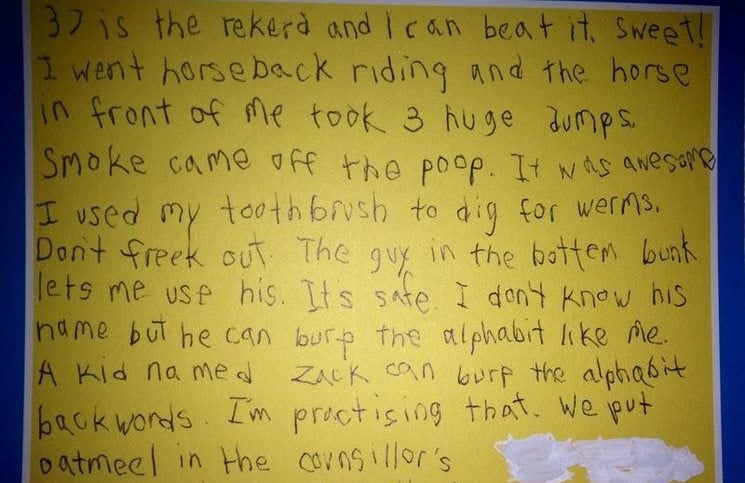 37 is the rekerd and I can beat it. Sweet!
I went horseback riding and the horse
in front of me took 3 huge dumps.
Smoke came off the poop. It was awesome
I used my toothbrush to dig for werms.
Don't freek out. The guy in the bottem bunk
lets me use his. It's safe. I don't know his
name but he can burp the alphabit like me.
A kid named Zack can burp the alphabit
backwords. I'm practising that. We put
oatmeel in the counsillor's